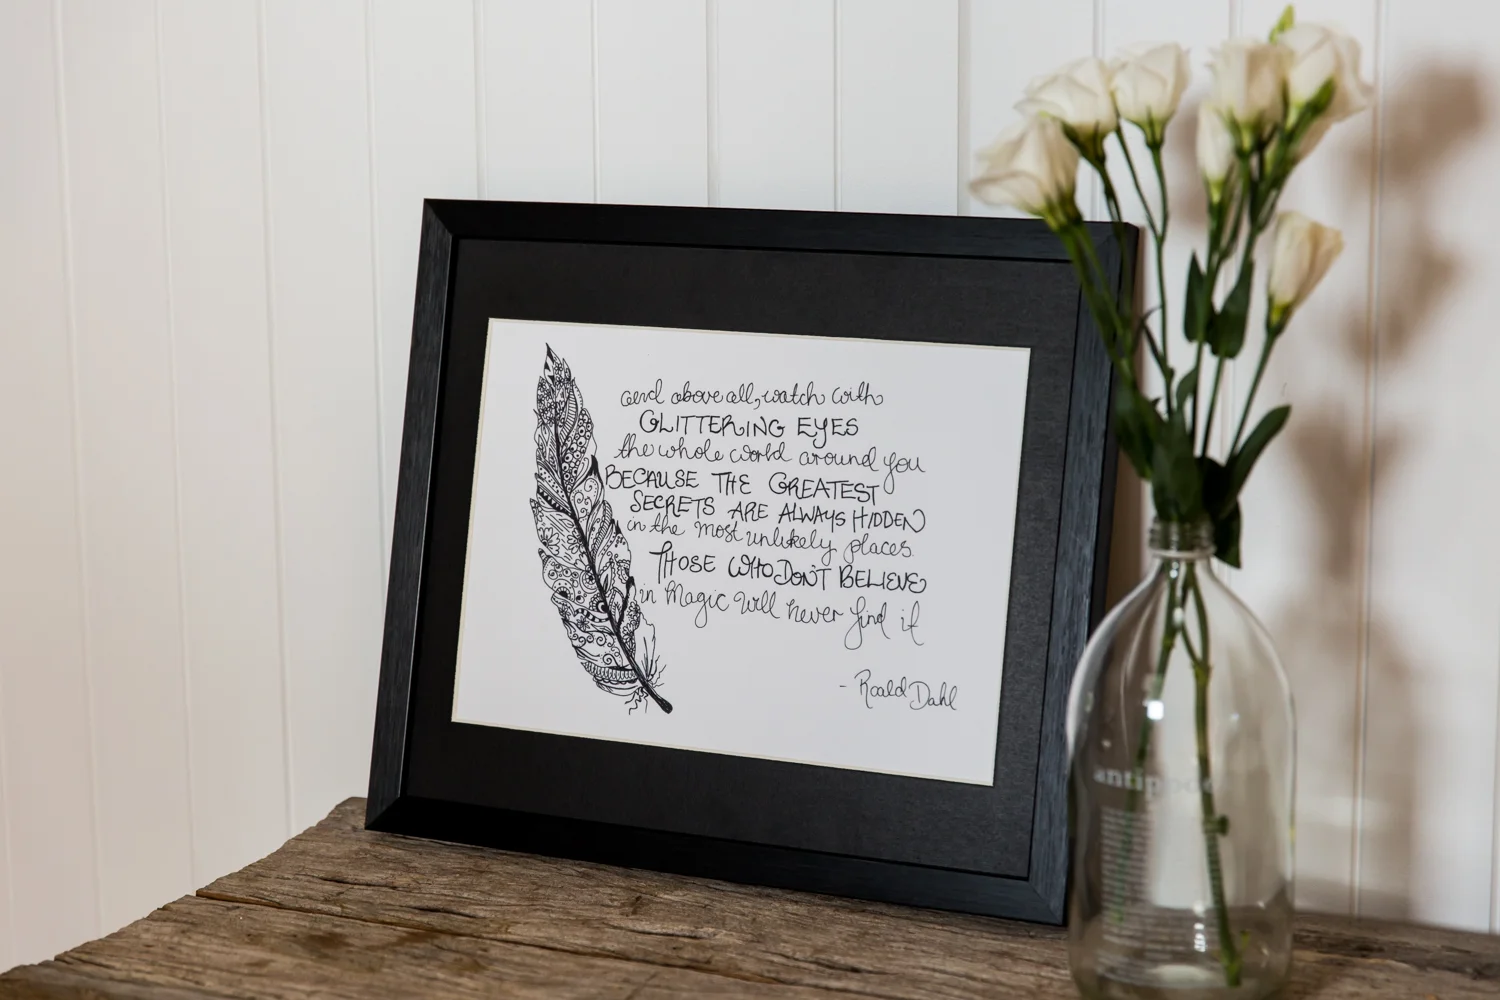 and above all, watch with
GLITTERING EYES
the whole world around you
BECAUSE THE GREATEST
SECRETS ARE ALWAYS HIDDEN
in the most unlikely places.
THOSE WHO DON'T BELIEVE
in magic will never find it
- Roald Dahl
antipode